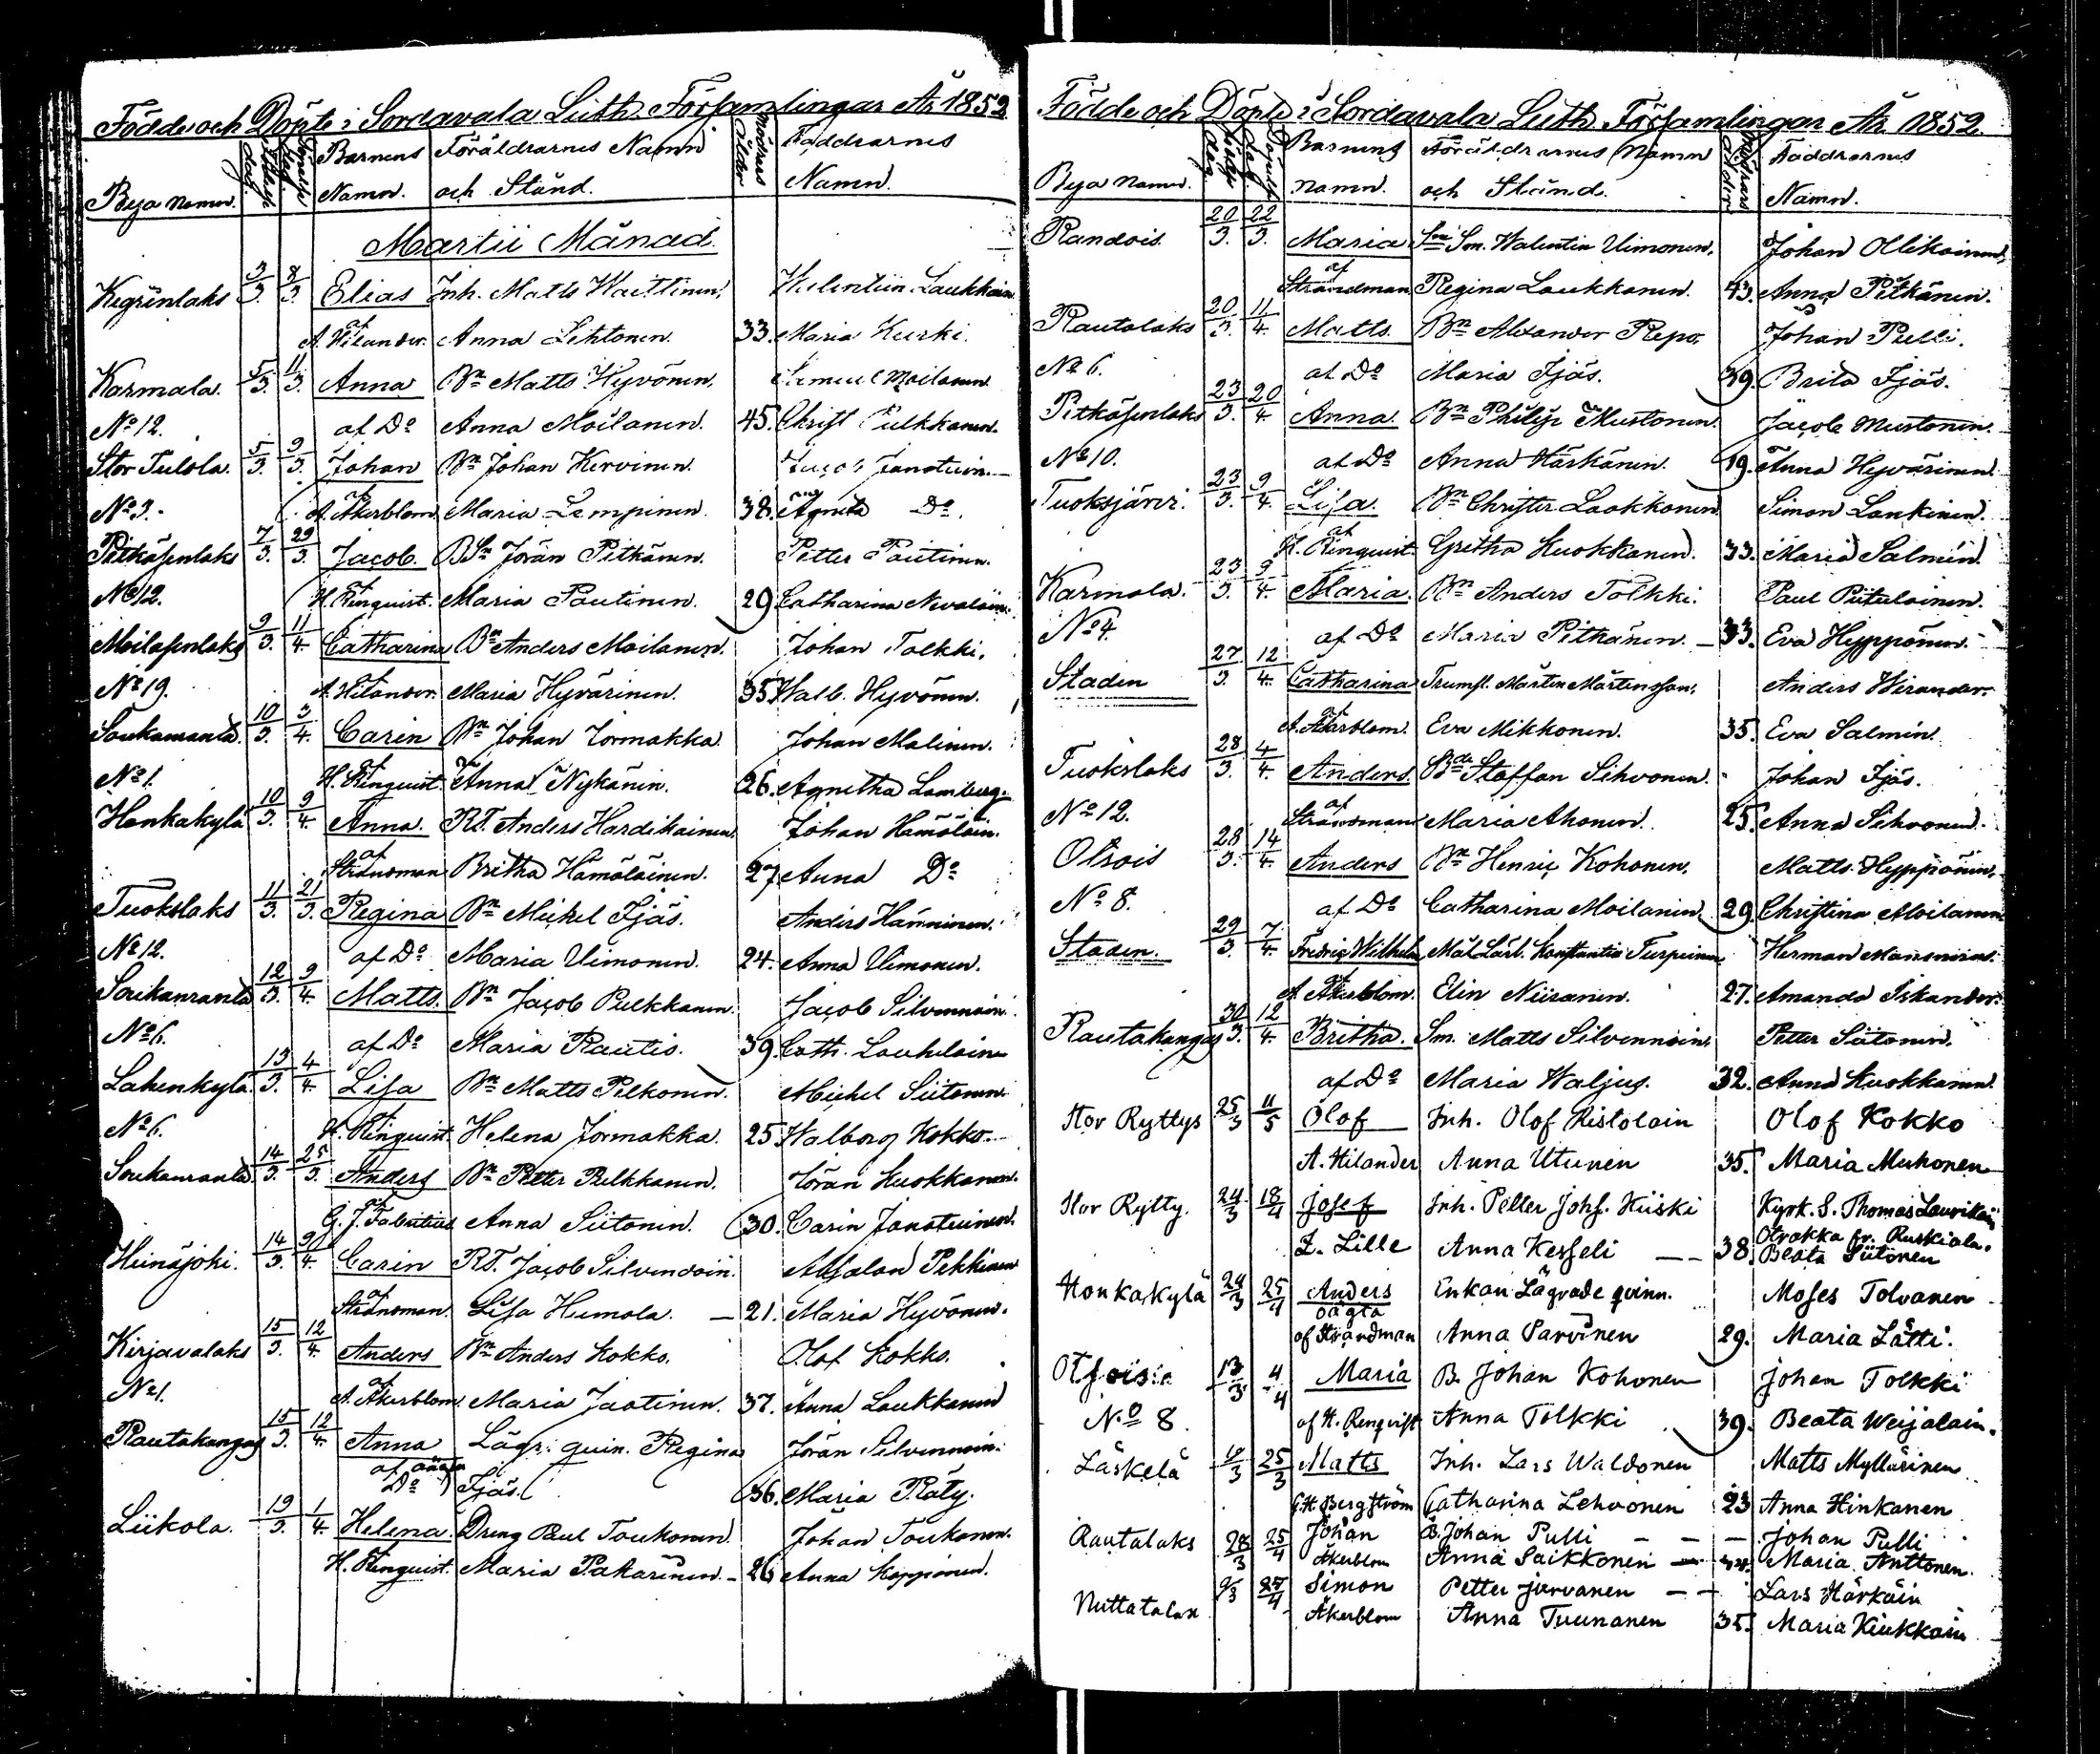 Födde och Döpte i Sordavala Luth. Församlingar År 1852
Bya Namn. Födelse dag Döpelse dag Barnens Namn. Föräldrarnes Namn och Stånd. Modrens Ålder Faddrarnes Namn.
Martii Månad.
Kegrinlaks 3/3. 8/3. Elias Inh. Matts Waittinen, Walentin Laukkain
af A. Hilander. Anna Lihtonen. 33. Maria Kurki.
Karmala. 5/3. 11/3. Anna Bn Matts Hyvönen. Samuel Moilanen
No 12. af Do Anna Moilanen. 45. Christ Pulkkanen.
Stor Tulola. 5/3. 9/3. Johan Bn Johan Kervinen. Jacob Janatuin
No 3. af A. Åkerblom Maria Lempinen. 38. Agneta Do.
Pitkäsenlaks 7/3. 29/3. Jacob. BSn Jöran Pitkänen. Petter Pautinen.
No 12. af H. Renquist. Maria Pautinen. 29. Catharina Nevalain.
Moilasenlaks 9/3. 11/4. Catharina Bn Anders Moilanen. Johan Tolkki.
No 19. A. Hilander. Maria Hyvärinen. 35. Walb. Hyvönen.
Soukanranta. 10/3. 3/4. Carin Bn Johan Jormakka. Johan Malinen.
No 1. af H. Renquist. Anna Nykänin. 26. Agnetha Lamberg.
Honkakylä 10/3. 9/4. Anna. RT. Anders Hardikainen. Johan Hämäläin.
af Strandman Britha Hämäläinen. 27. Anna Do
Tuokslaks 11/3. 21/3. Regina Bn Mickel Ijäs. Anders Hämninen.
No 12. af Do Maria Uimonen. 24. Anna Uimonen.
Soukanranta 12/3. 9/4. Matts. Bn Jacob Pulkkanen. Jacob Silvennoin.
No 6. af Do Maria Rautis. 39. Cath. Louhelain
Lahenkylä. 13/3. 4/4. Lisa Bn Matts Pelkonen. Mickel Siitonen.
No 6. af H. Renquist. Helena Jormakka. 25. Walborg Kokko.
Soukanranta 14/3. 25/3. Anders Bn Petter Pulkkanen. Jöran Kuokkanen.
af G. J. Fabritius Anna Siitonen. 30. Carin Janatuinen.
Heinäjoki. 14/3. 9/4. Carin RT. Jacob Silvendoin. Absalon Pekkinen
af Strandman. Lisa Humala. 21. Maria Hyvönen.
Kirjavalaks 15/3. 12/4. Anders Bn Anders Kokko. Olof Kokko.
No 1. af A. Åkerblom. Maria Jaatinen. 37. Anna Laukkanen
Rautakangas 15/3. 12/4. Anna Lägr. quin. Regina Jöran Silvennoin.
oägta af Do Ijäs. 36. Maria Räty.
Liikola. 19/3. 1/4. Helena. Dreng Paul Toukonen. Johan Toukonen.
H. Renquist. Maria Pakarinen. 26 Anna Koppinen.
Födde och Döpte i Sordavala Luth. Församlingar År 1852.
Bya Namn. Födelse dag Döpelse dag Barnens Namn. Föräldrarnes Namn och Stånd. Modrens ålder Faddrarnes Namn.
Randois. 20/3. 22/3. Maria Sm. Walentin Uimonen. Johan Ollikainen,
af Strandman Regina Laukkanen. 43. Anna Pitkänen.
Rautalaks 20/3. 11/4. Matts. Bn Alexander Repo. Johan Pulli.
No 6. af Do Maria Ijäs. 39. Brita Ijäs.
Pitkäsenlaks 23/3. 20/4. Anna. Bn Philip Mustonen. Jacob Mustonen.
No 10. af Do Anna Härkänen. 19. Anna Hyvärinen.
Tuoksjärvi. 23/3. 9/4. Lisa. Bn Christer Laakkonen Simon Lankinen.
af H. Renquist. Gretha Kuokkanen. 33. Maria Salmin.
Karmala. 23/3. 9/4. Maria. Bn Anders Tolkki. Paul Piitulainen.
No 4. af Do Maria Pitkänen. 33. Eva Hyppönen.
Staden 27/3. 12/4. Catharina Trumsl. Mårten Mårtensson. Anders Wirander.
af A. Åkerblom. Eva Mikkonen. 35. Eva Salmin.
Tuokslaks 28/3. 4/4. Anders. Bde Staffan Sihvonen. Johan Ijäs.
No 12. af Strandman Maria Ahonen. 25. Anna Sihvonen.
Otsois 28/3. 14/4. Anders Bn Henric Kohonen. Matts Hyppönen.
No 8. af Do Catharina Moilanen. 29. Christina Moilanen
Staden. 29/3. 7/4. Fredric Wilhelm Mål. Lärl. Konstantin Turpeinen. Herman Mansnerus.
af A. Åkerblom. Elin Niiranen. 27. Amanda Iskander.
Rautakangas 30/3. 12/4. Britha. Sm. Matts Silvennoin. Petter Siitonen.
af Do Maria Waljus. 32. Anna Kuokkanen.
Stor Ryttys 25/3 11/5 Olof Inh. Olof Ristolain Olof Kokko
A. Hilander Anna Utunen 35. Maria Muhonen
Stor Rytty. 24/3 18/4 Josef Inh. Petter Johs. Kiiski Kyrk. S. Thomas Laurikain
Otrakka fr. Ruskiala.
Z. Lille Anna Kesseli 38. Beata Siitonen
Honkakylä 24/3 25/4 Anders Enkan Lägrade qvinn. Moses Tolvanen
oägta
af Strandman Anna Parvinen 29. Maria Lätti.
Otsois 13/3 4/4 Maria B. Johan Kohonen Johan Tolkki
No 8. af H. Renqvist Anna Tolkki 39. Beata Weijalain.
Läskelä 10/3 25/3 Matts Inh. Lars Waldonen Matts Myllärinen
G.H. Bergström Catharina Lehvonen 23 Anna Hinkanen
Rautalaks 28/3 25/4 Johan B. Johan Pulli Johan Pulli
Åkerblom Anna Saikkonen 44. Maria Anttonen
9/3 25/4 Simon Petter Jurvanen Lars Härkäin
Åkerblom Anna Tuunanen 35. Maria Kiukkain